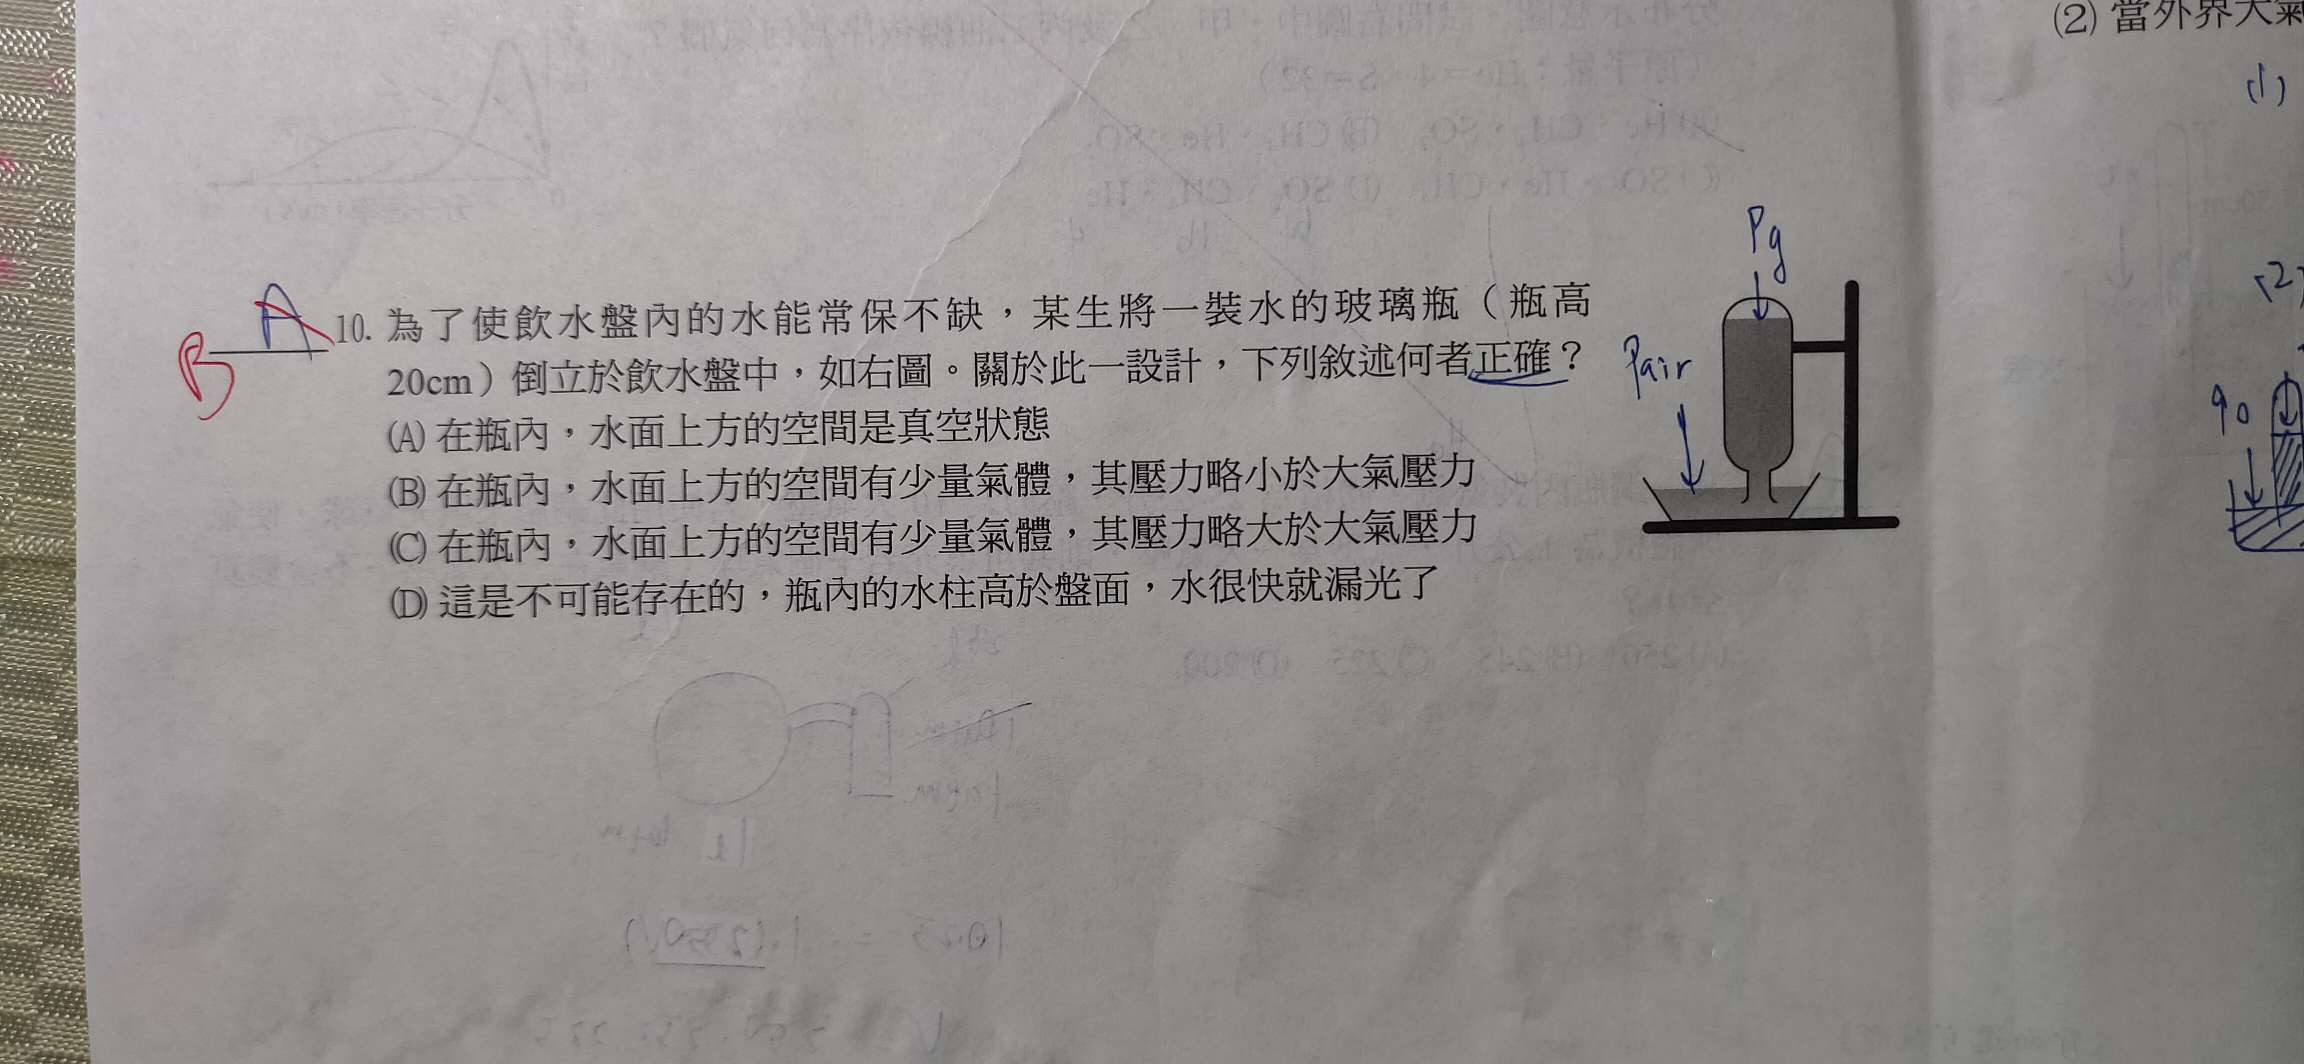 (2) 當外界大氣
(1)
(2)
Pg
B A 10. 為了使飲水盤內的水能常保不缺，某生將一裝水的玻璃瓶（瓶高
20cm）倒立於飲水盤中，如右圖。關於此一設計，下列敘述何者正確？
Pair
(A) 在瓶內，水面上方的空間是真空狀態
(B) 在瓶內，水面上方的空間有少量氣體，其壓力略小於大氣壓力
(C) 在瓶內，水面上方的空間有少量氣體，其壓力略大於大氣壓力
(D) 這是不可能存在的，瓶內的水柱高於盤面，水很快就漏光了